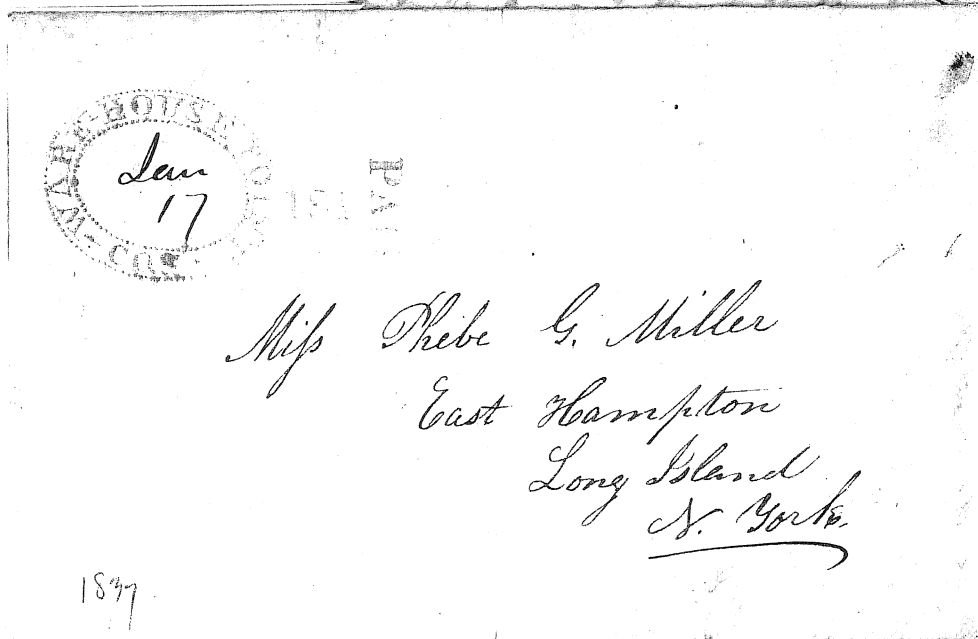 WARE-HOUSE POINT
-CON-
Jan
17
PA
Miſs Phebe G. Miller
East Hampton
Long Island
N. York.
1837